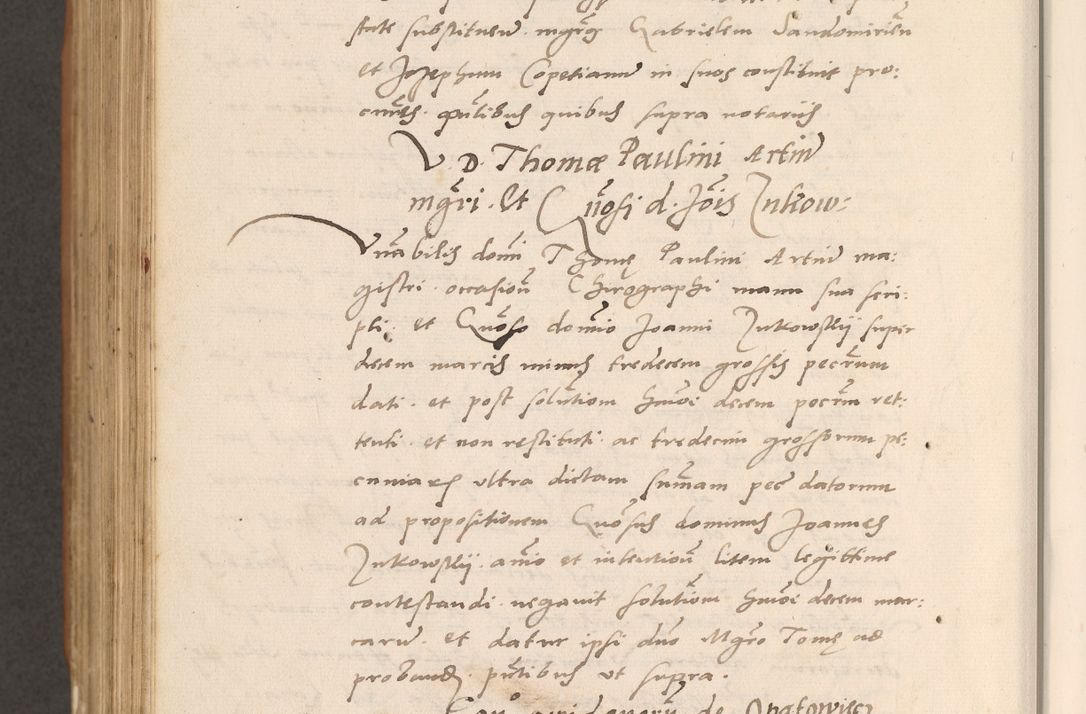 state substituen. mgrz Gabrielem Sandomirien
et Josephum Copetianum in suos constituit pro:
cnrles. pntibus quibus supra notariis
V. D. Thomæ Paulini Artiu
mgri. Et Gnosi d. Jois Zukow:
Vnabilis domi Thomę Paulini Artiu ma:
gistri. occasion Chirographi manu sua scri:
pti. et Gnoso domio Joanni Zukowskij super
decem marcis minus tredecem grossis pecrum
dati. et post solution hmoi decem pocrum ret:
tenti. et non restituti. ac tredecim grossorum pe:
cuniarz ultra dictam summam pec datorum
ad propositionem Gnosus dominus Joannes
Zukowskij. animo et intention litem legittime
contestandi. negavit solution hmoi decem mar:
caru. et datur ipsi duo Mgro Tomę ad
proband. pntibus ut supra.
de Opatowiecz